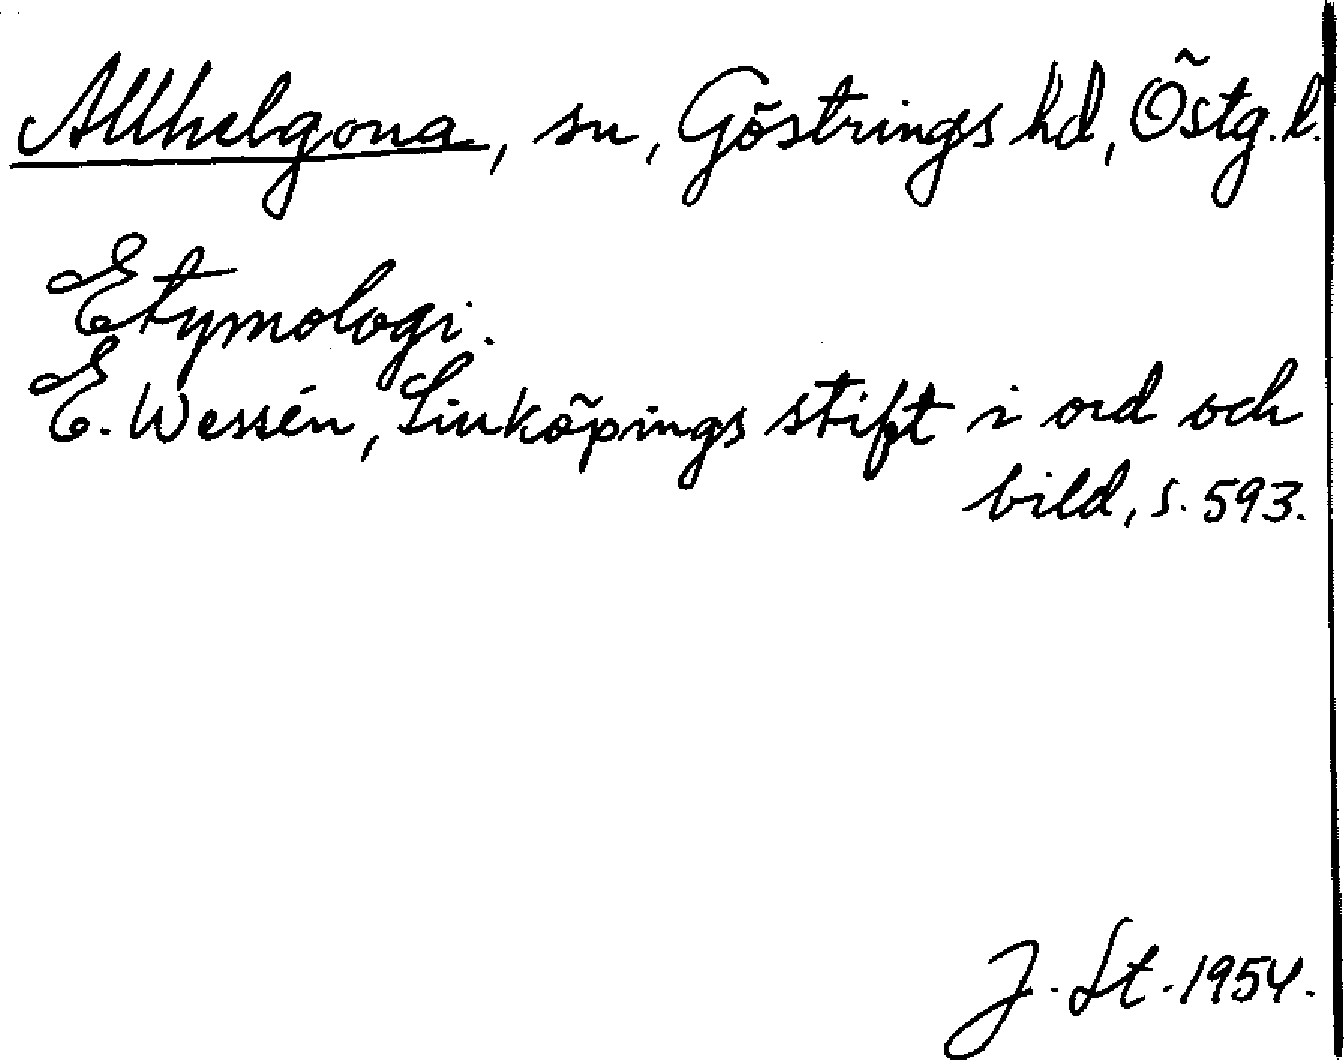 Allhelgona, sn, Göstrings hd, Östg. l.
Etymologi.
E. Wessén, Linköpings stift i ord och
bild, s. 593.
J. St. 1954.